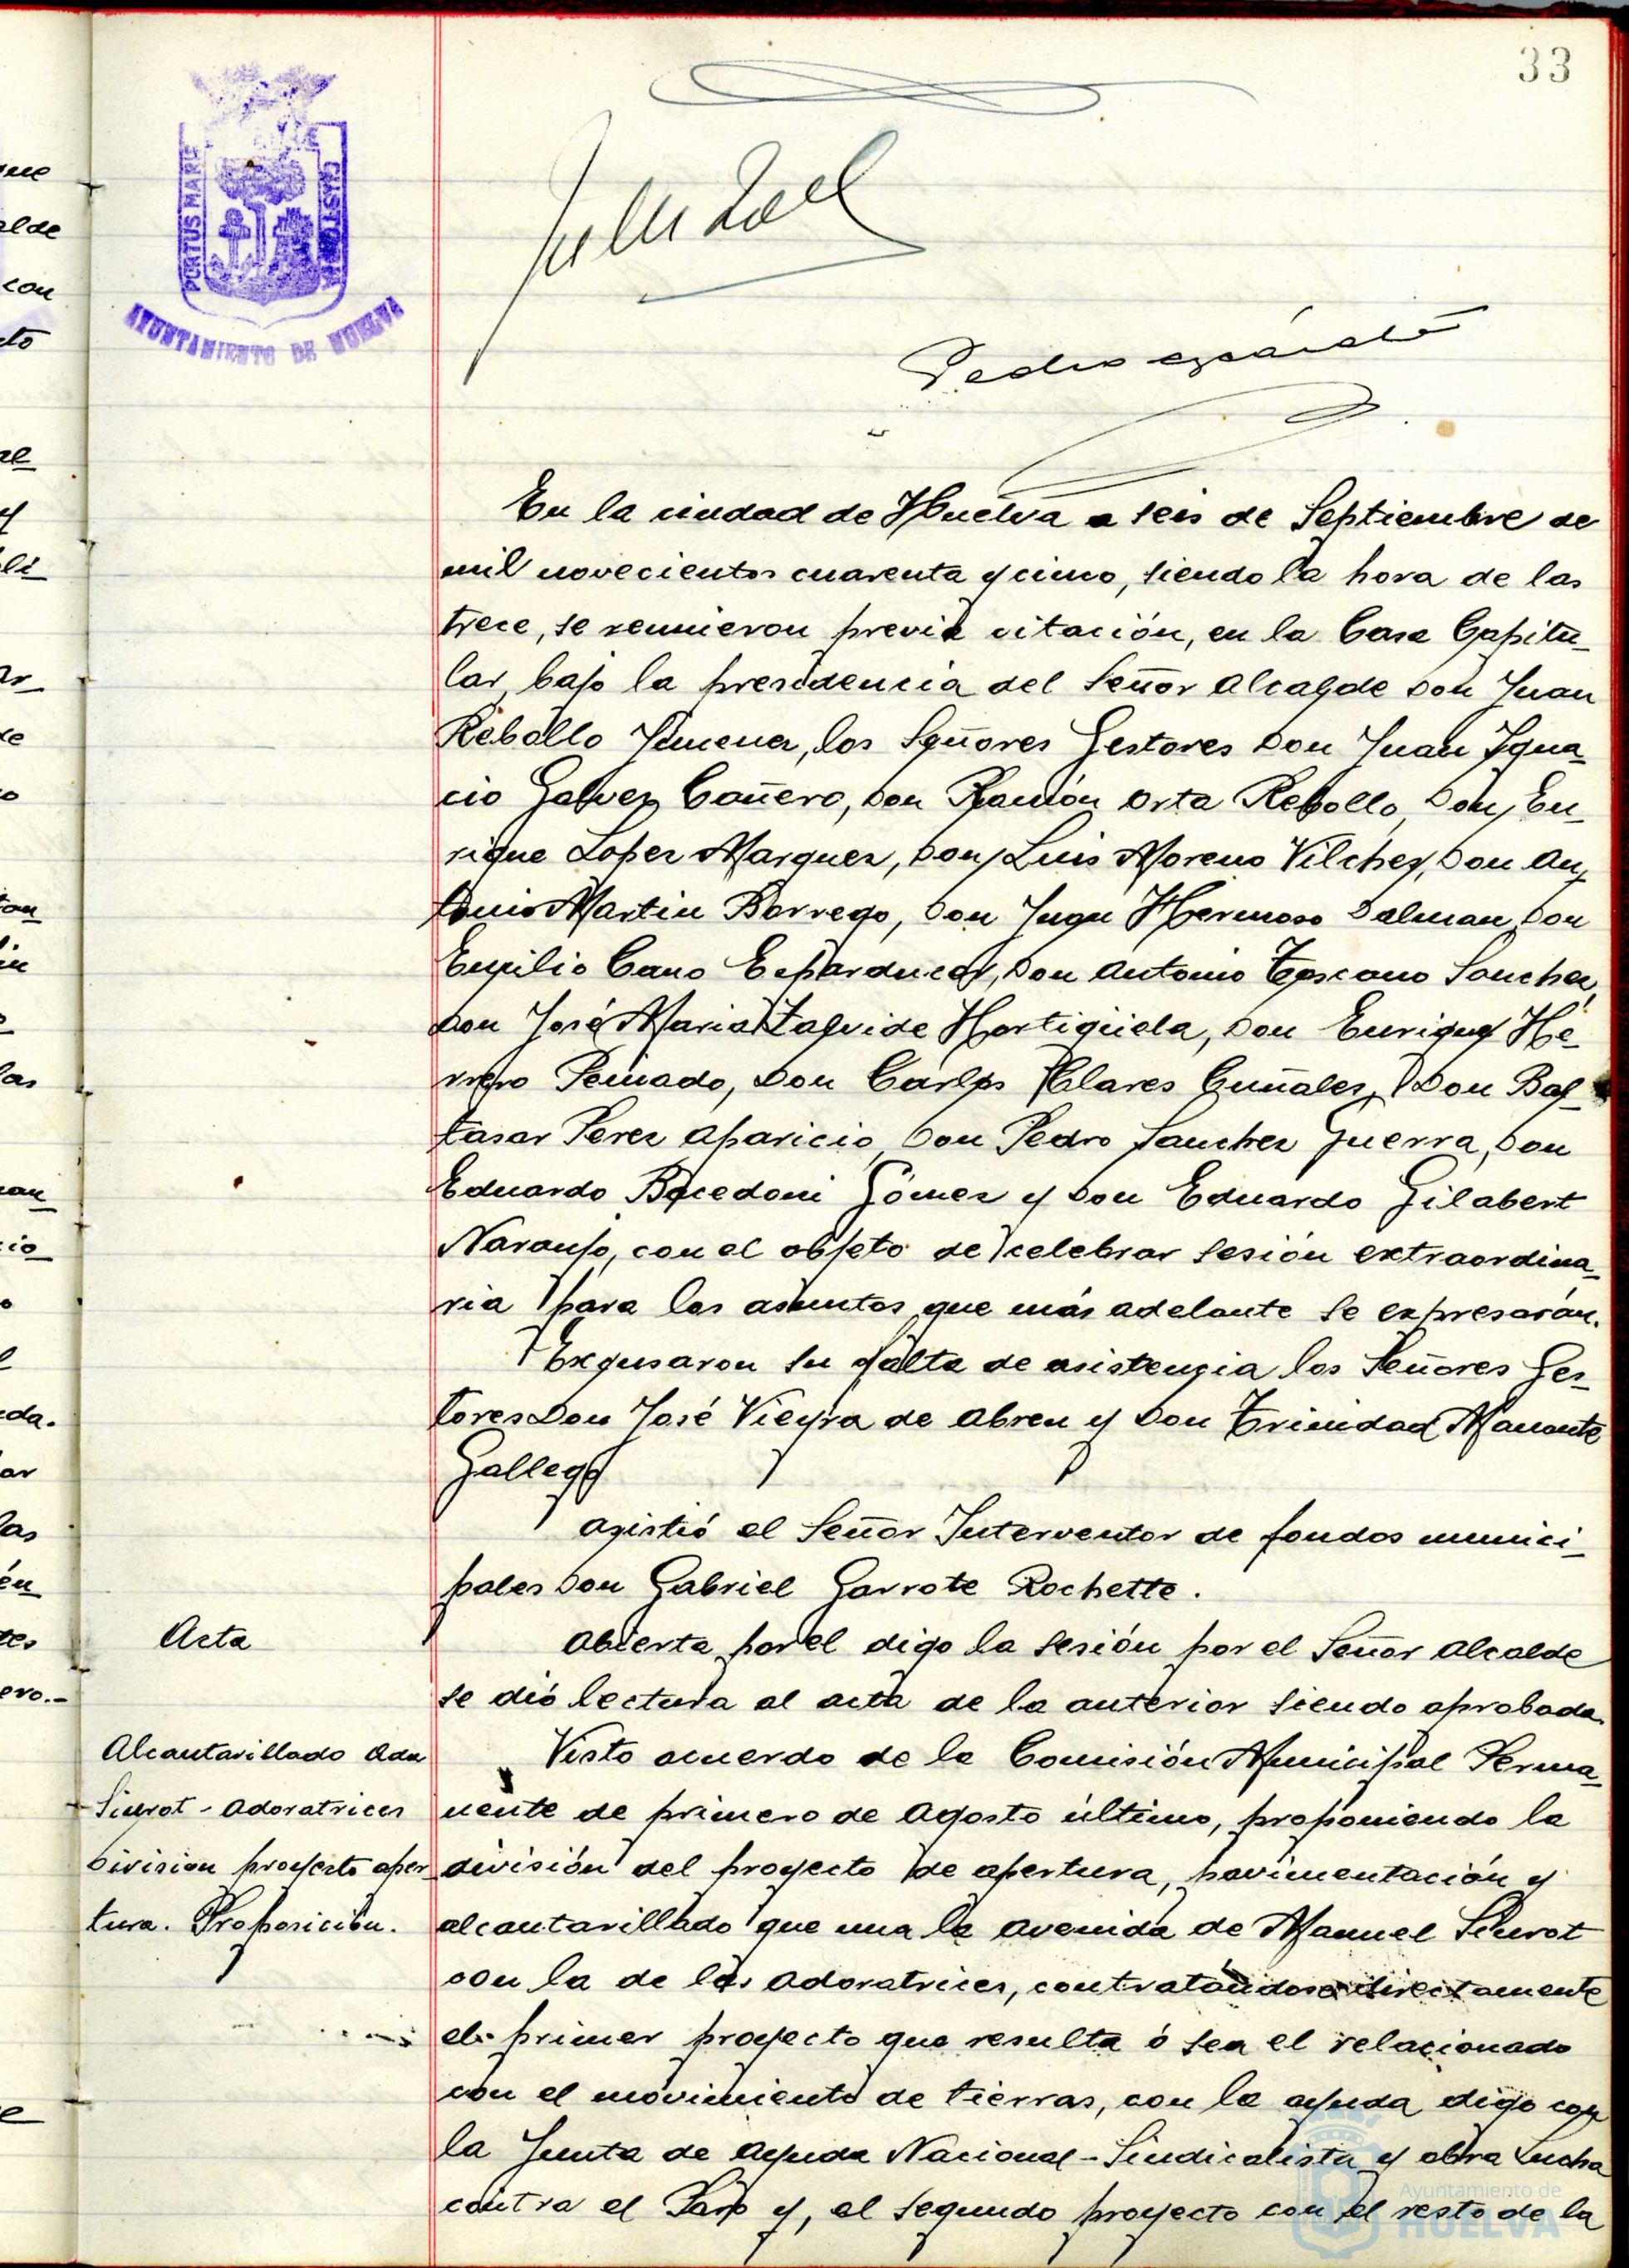 33
PORTUS MARIS
AYUNTAMIENTO DE HUELVA
Pedro
En la ciudad de Huelva a seis de Septiembre de
mil novecientos cuarenta y cinco, siendo la hora de las
trece, se reunieron previa citación, en la Casa Capitu-
lar, bajo la presidencia del Señor Alcalde Don Juan
Rebollo Jimenez, los Señores Gestores Don Juan Igna-
cio Galvez Cañero, Don Ramón Orta Rebollo, Don En-
rique Lopez Marquez, Don Luis Moreno Vilchez, Don An-
tonio Martin Borrego, Don Juan Hermoso Dalman, Don
Emilio Cano Don Antonio Toscano Sanchez,
Don José Maria Hortigüela, Don Enrique He-
rrero Peinado, Don Carlos Clares Don Bal-
tasar Perez Aparicio, Don Pedro Sanchez Guerra, Don
Eduardo Gómez y Don Eduardo Gilabert
Naranjo, con el objeto de celebrar sesión extraordina-
ria para los asuntos que más adelante se expresarán.
Excusaron su falta de asistencia los Señores Ges-
tores Don José Vieyra de Abreu y Don Trinidad
Gallego
Asistió el Señor Interventor de fondos munici-
pales Don Gabriel Garrote Rochette.
Acta
Abierta por el digo la sesión por el Señor Alcalde
se dió lectura al acta de la anterior siendo aprobada.
Alcantarillado Ada
Siurot - Adoratrices
Division proyecto aper
tura. Proposición.
Visto acuerdo de la Comisión Municipal Perma-
nente de primero de Agosto último, proponiendo la
división del proyecto de apertura, pavimentación y
alcantarillado que una la avenida de Manuel Siurot
con la de las Adoratrices, contratándose directamente
el primer proyecto que resulta ó sea el relacionado
con el movimiento de tierras, con la ayuda digo con
la Junta de Ayuda Nacional-Sindicalista y obra Lucha
contra el Paro y, el segundo proyecto con el resto de la
Ayuntamiento de
HUELVA